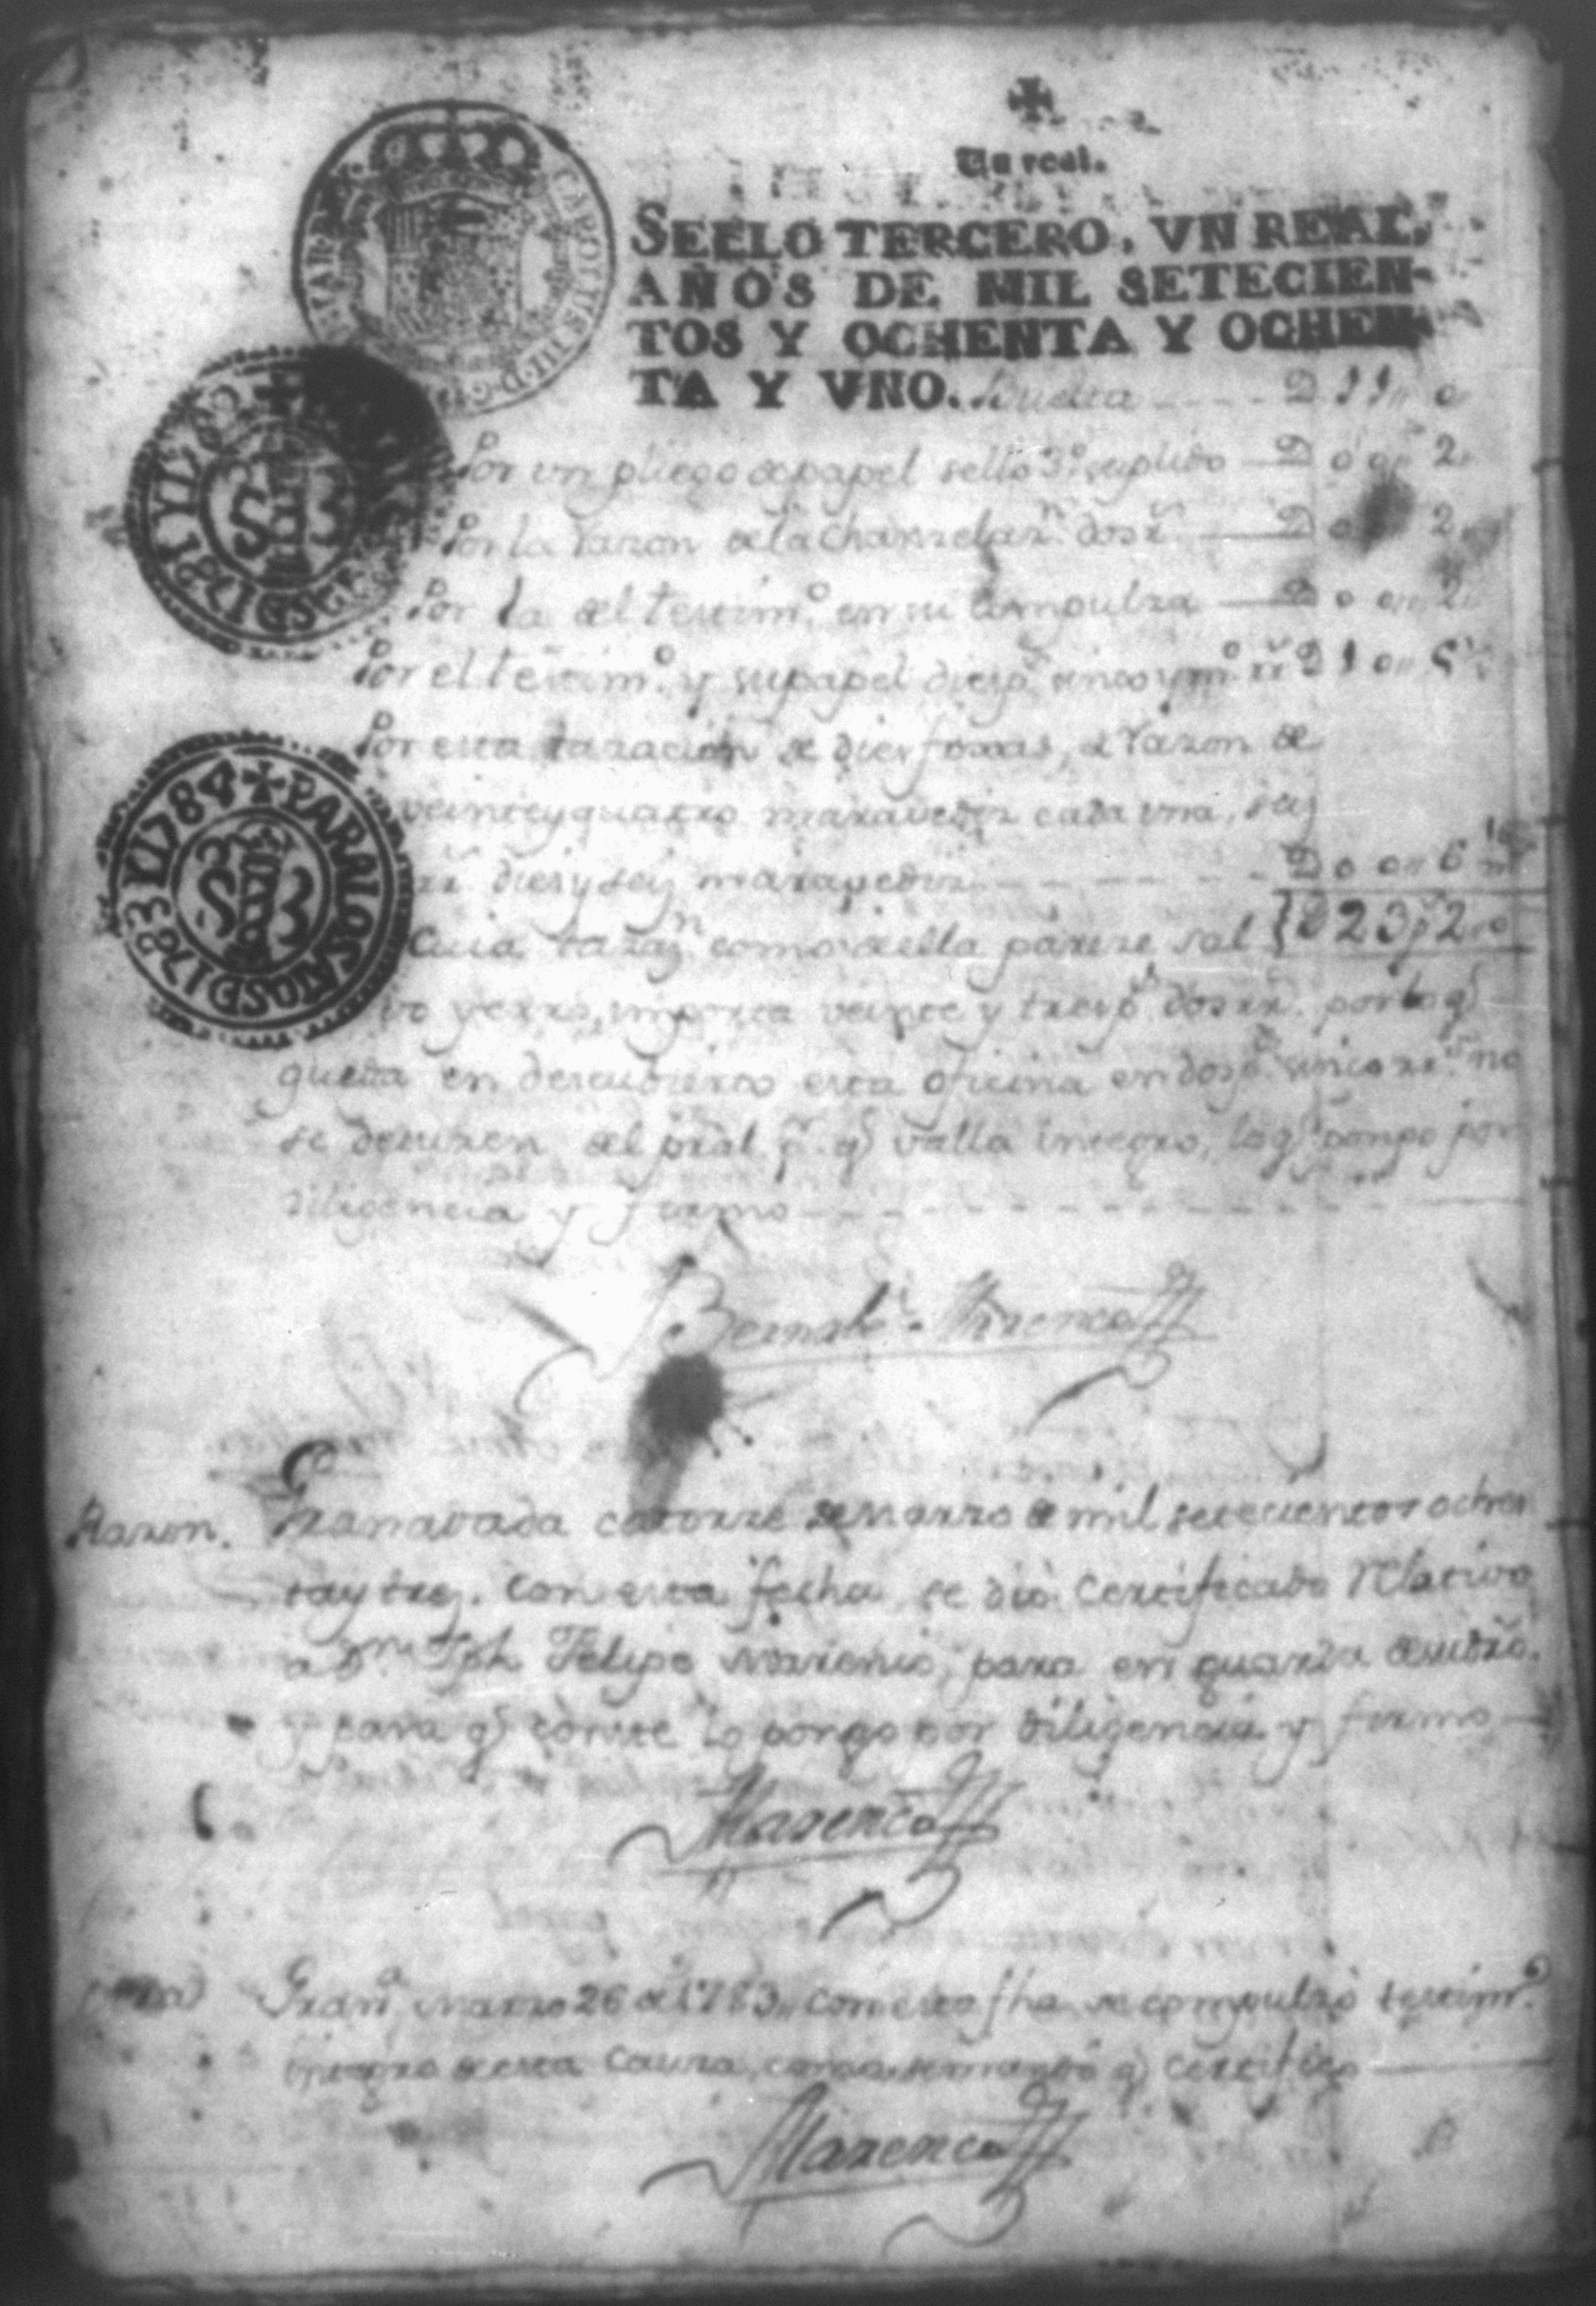 Un real.
SELLO TERCERO, VN REAL,
AÑOS DE MIL SETECIEN-
TOS Y OCHENTA Y OCHEN-
TA Y VNO.
Buelta - - - - D 11 " 0
Por vn pliego de papel sello 3º suplido — D 0 0 " 2
Por la razon de la chanzelarn. dos rs — D 0 2
Por la del testimo en su compulza — D 0 0 " 2
Por el testimo y su papel dies ps sinco y mo rr D 1 0 " 5
Por esta tazacion de dies foxas, a razon de
veinte y quatro maravediz cada vna, seis
rr dies y seis maravediz - - - - D 0 0 " 6
Cuia tazn como de ella parese sal D 23 p 2
vo yerro, importa veinte y tres ps dos rr. por lo q
queda en descubierto esta oficina en dos ps sinco rrs no
se deduzen del pral pr q valla integro, lo q pongo por
diligencia y firmo
Bernabé Marenco
Razon.
Granada y catorze de Marzo de mil setecientos ochen
ta y tres. Con esta fecha se dió Certificado relativo
a Dn Jph Felipe Marenco, para en guarda de su dro.
y para q conste lo pongo por diligencia y firmo
Marenco
Grana Marzo 26 de 1783 " Con esta fha se compulzó testimo
integro de esta Cauza, como se mandó q certifico
Marenco
CAROLUS III D G
1780 Y 1781
PARA LOS AÑOS D 1783 Y 1784